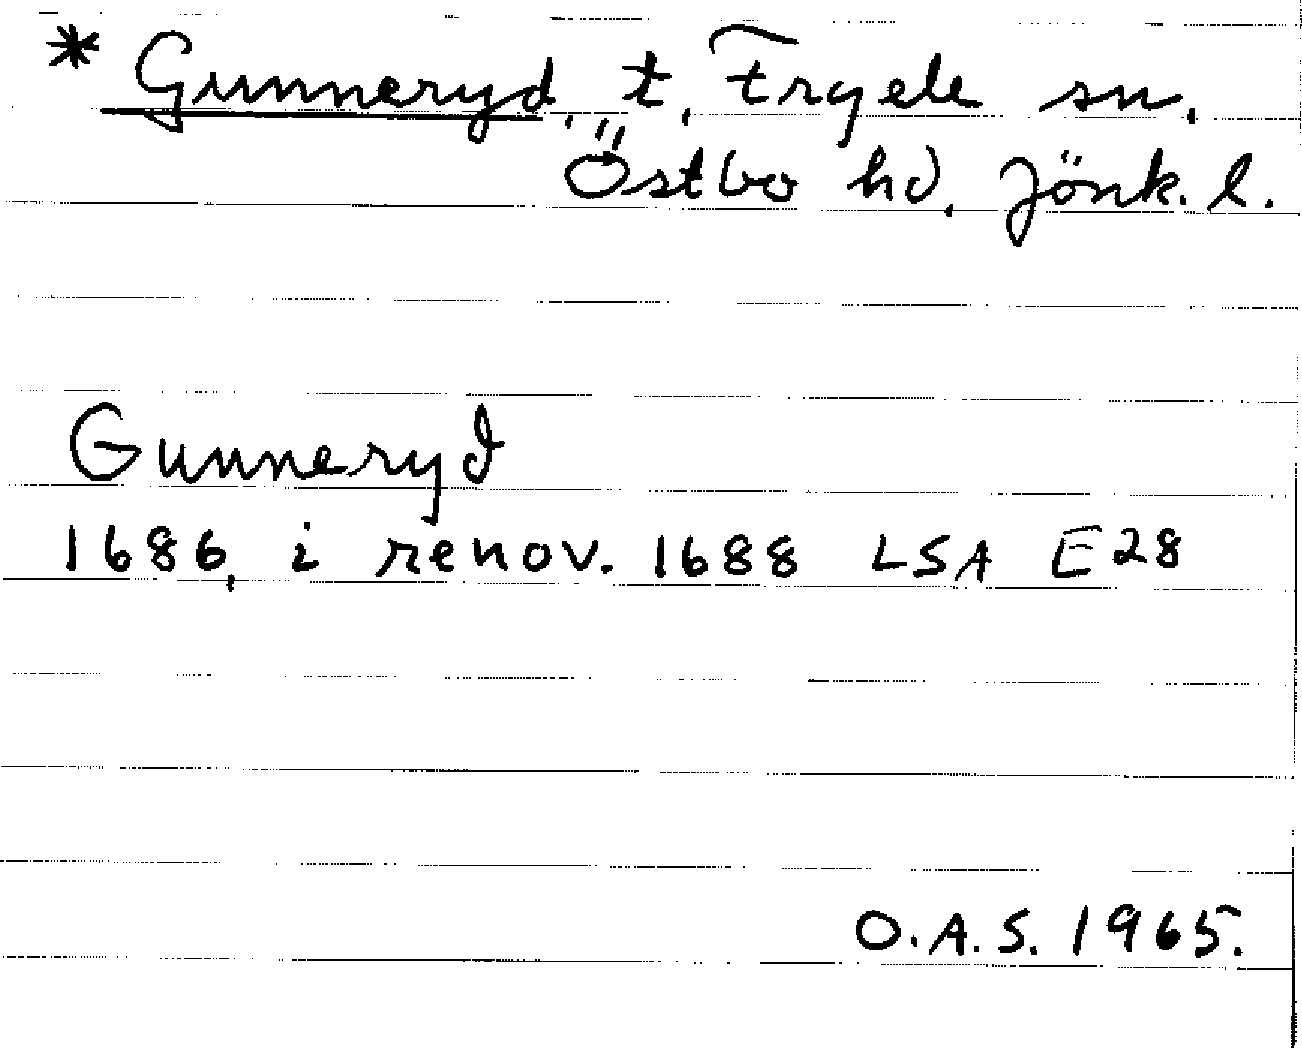 * Gunneryd, t, Fryele sn,
Östbo hd, Jönk. l.
Gunneryd
1686, i renov. 1688 LSA E28
O.A.S. 1965.